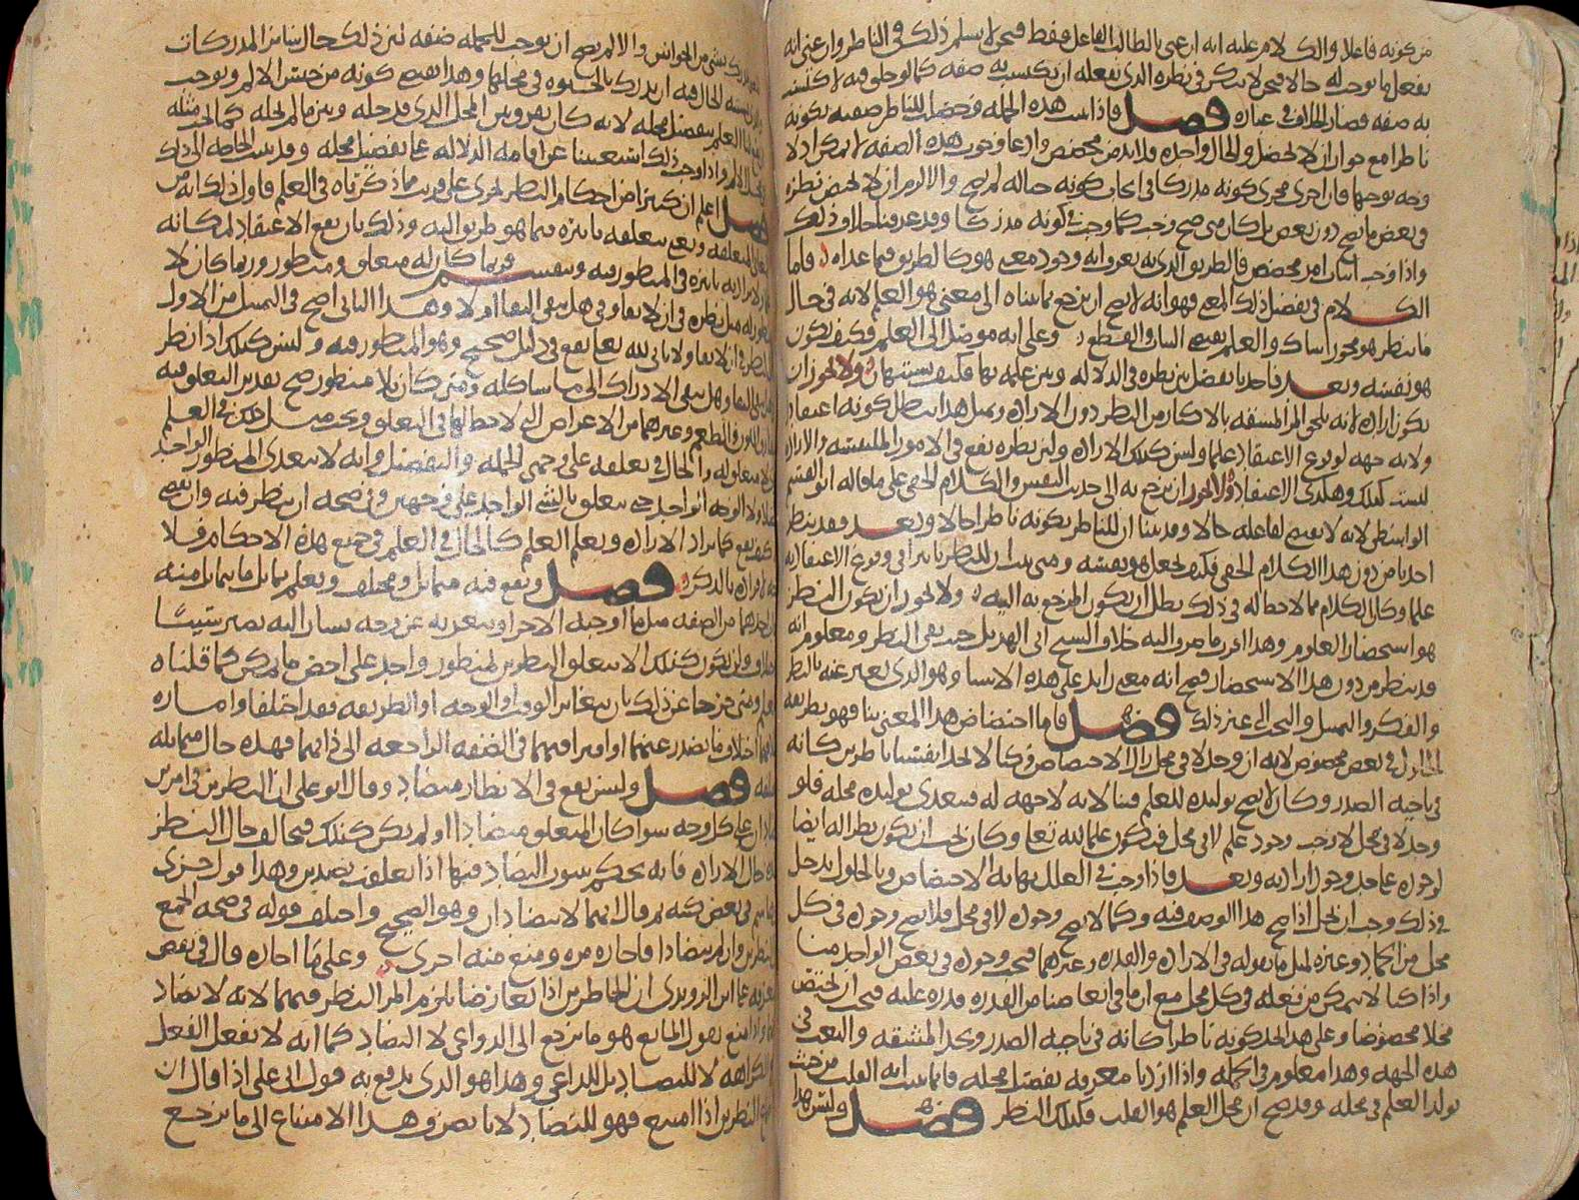 من كونه فاعلا والكلام عليه انه ان عنى بالطالب الفاعل فقط فنحن لا نسلم ذلك في الناظر وان عنى انه
يفعل ما يوجب له حالا فنحن لا ننكر في نظره الذي نفعله ان يكتسب به صفه كما لو خلق فيه لاكتسب
به صفه فصار الخلاف في عباره فصل فاذا ثبت هذه الجمله وحصل للناظر صفه بكونه
ناظرا مع جواز ان لا تحصل والحال واحده فلا بد من مخصص وادعا وجوب هذه الصفه لا يمكن اذ لا
وجه يوجبها فان اجرى مجرى كونه مدركا في ايجاب كونه حيا له لم يصح والا لزم ان لا يختص نظره
في بعض ما يصح دون بعض بل كان متى صح وجب كما وجب في كونه مدركا وقد عرفنا خلاف ذلك
واذا وجب اثبات امر مخصص فالطريق الذي به يعرف انه وجود معنى هو كالطريق فيما عداه فاما
الكلام في تفصيل ذلك المعنى فهو انه لا يصح ان يرجع بما بيناه الى معنى هو العلم لانه في حال
ما ينظر هو مجوز شاك والعلم يقتضي البيان والقطع وعلى انه موصل الى العلم فكيف يكون
هو نفسه وبعد فاحدنا يفصل بين نظره في الدلاله وبين علمه بها فكيف يشتبهان ولا يجوز ان
يكون اراده لانه يلحق المرا المشقه بالاكثار من النظر دون الاراده وبمثل هذا يبطل كونه اعتقادا
ولانه جهه لوقوع الاعتقاد علما وليس كذلك الاراده ولان نظره يقع في الامور الملتبسه والاراده
ليست كذلك وهكذى الاعتقاد ولا يجوز ان يرجع به الى حديث النفس والكلام الخفي على ما قاله ابو القسم
الواسطي لانه لا يقتضي لفاعله حالا وقد بينا ان للناظر بكونه ناظرا حالا وبعد فقد ينظر
احدنا من دون هذا الكلام الخفي فكيف يجعل هو نفسه ومتى ثبت ان للنظر تاثيرا في وقوع الاعتقاد به
علما وكان الكلام مما لا حظ له في ذلك بطل ان يكون المرجع به اليه ولا يجوز ان يكون النظر
هو استحضار العلوم وهذا اقرب ما صرف اليه خلاف الشيخ ابي الهذيل حيث نفى النظر ومعلوم انه
قد ينظر من دون هذا الاستحضار فصح انه معنى زايد على هذه الاشيا وهو الذي يعبر عنه بالنظر
والفكر والتمييل والبحث الى غير ذلك فصل فاما اختصاص هذا المعنى بنا فهو بطريقه
الحلول في بعض مخصوص لانه ان وجد لا في محل زال الاختصاص وكنا لا نجد انفسنا ناظرين كانه
في ناحيه الصدر وكان لا يصح توليده للعلم فينا لانه لا جهه له فيتعدى توليده محله فلو
وجد لا في محل لاوجب وجود علم لا في محل فيكون علما لله تعا وكان يجب ان يكون نظرا له ايضا
لوجوده على حد وجود ارادته وبعد فاذا وجب في العلل نهايه الاختصاص وبالحلول يدخل
في ذلك وجب ان يحل اذا صح هذا الوصف فيه وكما لا يصح وجوده لا في محل فلا يصح وجوده في كل
محل من الجماد وغيره لمثل ما نقوله في الاراده والقدره وغيرهما فيجب وجوده في بعض الواحد منا
واذا كنا لا نتمكن من فعله في كل محل مع ان ما في ابعاضنا من القدره قدره عليه فيجب ان يختص
محلا مخصوصا وعلى هذا نجد كونه ناظرا كانه في ناحيه الصدر ونجد المشقه والتعب في
هذه الجهه وهذا معلوم في الجمله واذا اردنا معرفه تفصيل محله فانما يثبت انه القلب من حيث
يولد العلم في محله وقد صح ان محل العلم هو القلب فكذلك النظر فصل وليس هذا
بشي من الحواس والا لم يصح ان يوجب للجمله صفه لان ذلك حال سائر المدركات
الحال فيه ان يدرك بالحيوه في محلها وهذا يقتضي كونه من جنس الالم ويوجب
العلم بتفصيل محله لانه كان يفرق بين المحل الذي قد حله وبين ما لم يحله كما يجب مثله
في الالم واذا وجب ذلك استغنينا عن اقامه الدلاله على تفصيل محله وقد ثبت الحاجه الى ذلك
فصل اعلم ان كثيرا من احكام النظر تجري على قريب مما ذكرناه في العلم فاول ذلك انه من
المعاني المتعلقه ويعم بتعلقه تاثيره فيما هو طريق اليه وذلك بان يقع الاعتقاد لمكانه
تاثيره في المنظور فيه وينقسم فربما كان له متعلق ومنظور وربما كان لا
منظور له مثل نظره في ان لا بقا وفي هل يبقى البقا ام لا وهذا الثاني اصح في التمثيل من الاول
النظر في ان لا بقا ولا ثاني لله تعا يقع في دليل صحيح وهو المنظور فيه وليس كذلك اذا نظر
هل يبقى البقا وهل يبقى الادراك الى ما شاكله ومتى كان بلا منظور صح تقدير التعلق فيه
اللون والطعم وغيرهما من الاعراض التي لا حظ لها في التعلق ونحو مثل ذلك في العلم
لا معلوم له والحال في تعلقه على وجهي الجمله والتفصيل وانه لا يتعدى المنظور الواحد
ولا الوجه الواحد حتى يتعلق بالشي الواحد على وجهين وفي صحه ان ينظر فيه وان نعلم
كيف يقع كما يراد الاراده ويعلم العلم كالحال في العلم في جميع هذه الاحكام فلا
افراده بالذكر فصل ويقع فيه متماثل ومختلف ويعلم تماثل ما تماثل منه
احدهما من الصفه مثل ما اوجبه الاخر او يتعذر به عن وجه يشار اليه يصير سببا
ولن يكون كذلك الا بتعلق النظرين بمنظور واحد على اخص ما يمكن كما قلناه
العلم ومتى خرجا عن ذلك بان يتغاير الوقت او الوجه او الطريقه فقد اختلفا واماره
اختلاف ما يصدر عنهما او افتراقهما في الصفه الراجعه الى ذاتهما فهذه حال متماثله
فصل وليس يقع في الانظار متضاد وقال ابو علي ان النظرين في امرين
على كل وجه سوا كان المتعلق متضادا او لم يكن كذلك فخالف حال النظر
حال الاراده فانه يحكم بثبوت التضاد فيها اذا تعلقت بضدين وهذا قول جرى
في بعض كتبه ثم قال انهما لا يتضادان وهو الصحيح واختلف قوله في صحه الجمع
النظرين وان لم يتضادا فاجازه مره ومنع منه اخرى وعلى ما اجازه قال في نقض
ابن الروندي ان الخاطرين اذا تعارضا يلزم المرا النظر فيهما لانه لا تضاد
يقول المانع هو ما يرجع الى الدواعي لا التضاد كما انه لا يفعل الفعل
والكراهه لا للتضاد بل للداعي وهذا هو الذي يدفع به قول ابي علي اذا قال ان
النظرين اذا امتنع فهو للتضاد لانا نصرف هذا الامتناع الى ما يرجع